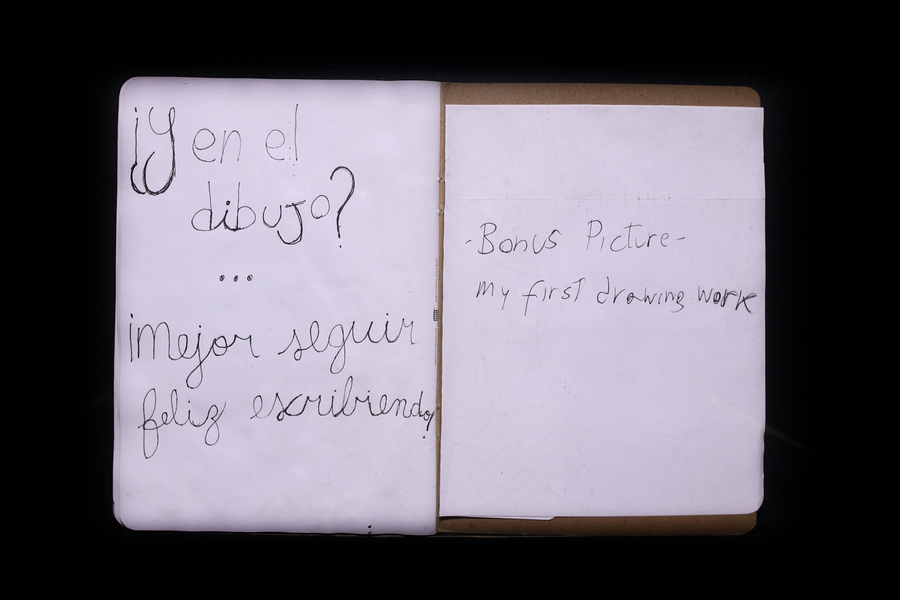 ¡Y en el
dibujo?
...
¡Mejor seguir
feliz escribiendo!
-Bonus Picture-
my first drawing work